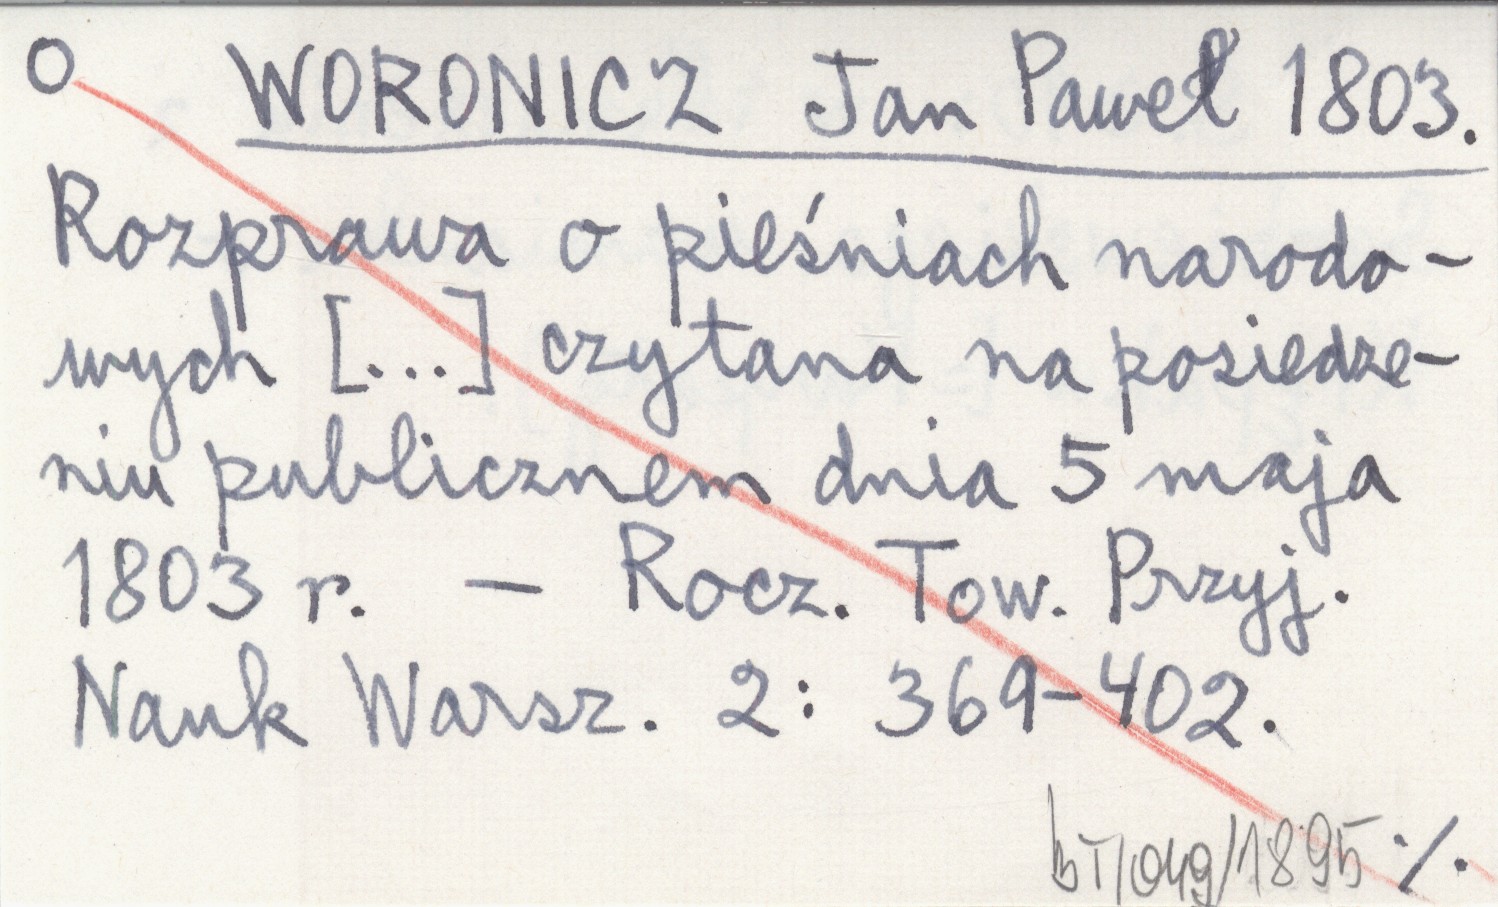 O WORONICZ Jan Paweł 1803.
Rozprawa o pieśniach narodo-
wych [...] czytana na posiedze-
niu publicznem dnia 5 maja
1803 r. — Rocz. Tow. Przyj.
Nauk Warsz. 2: 369-402.
/1895 ./.